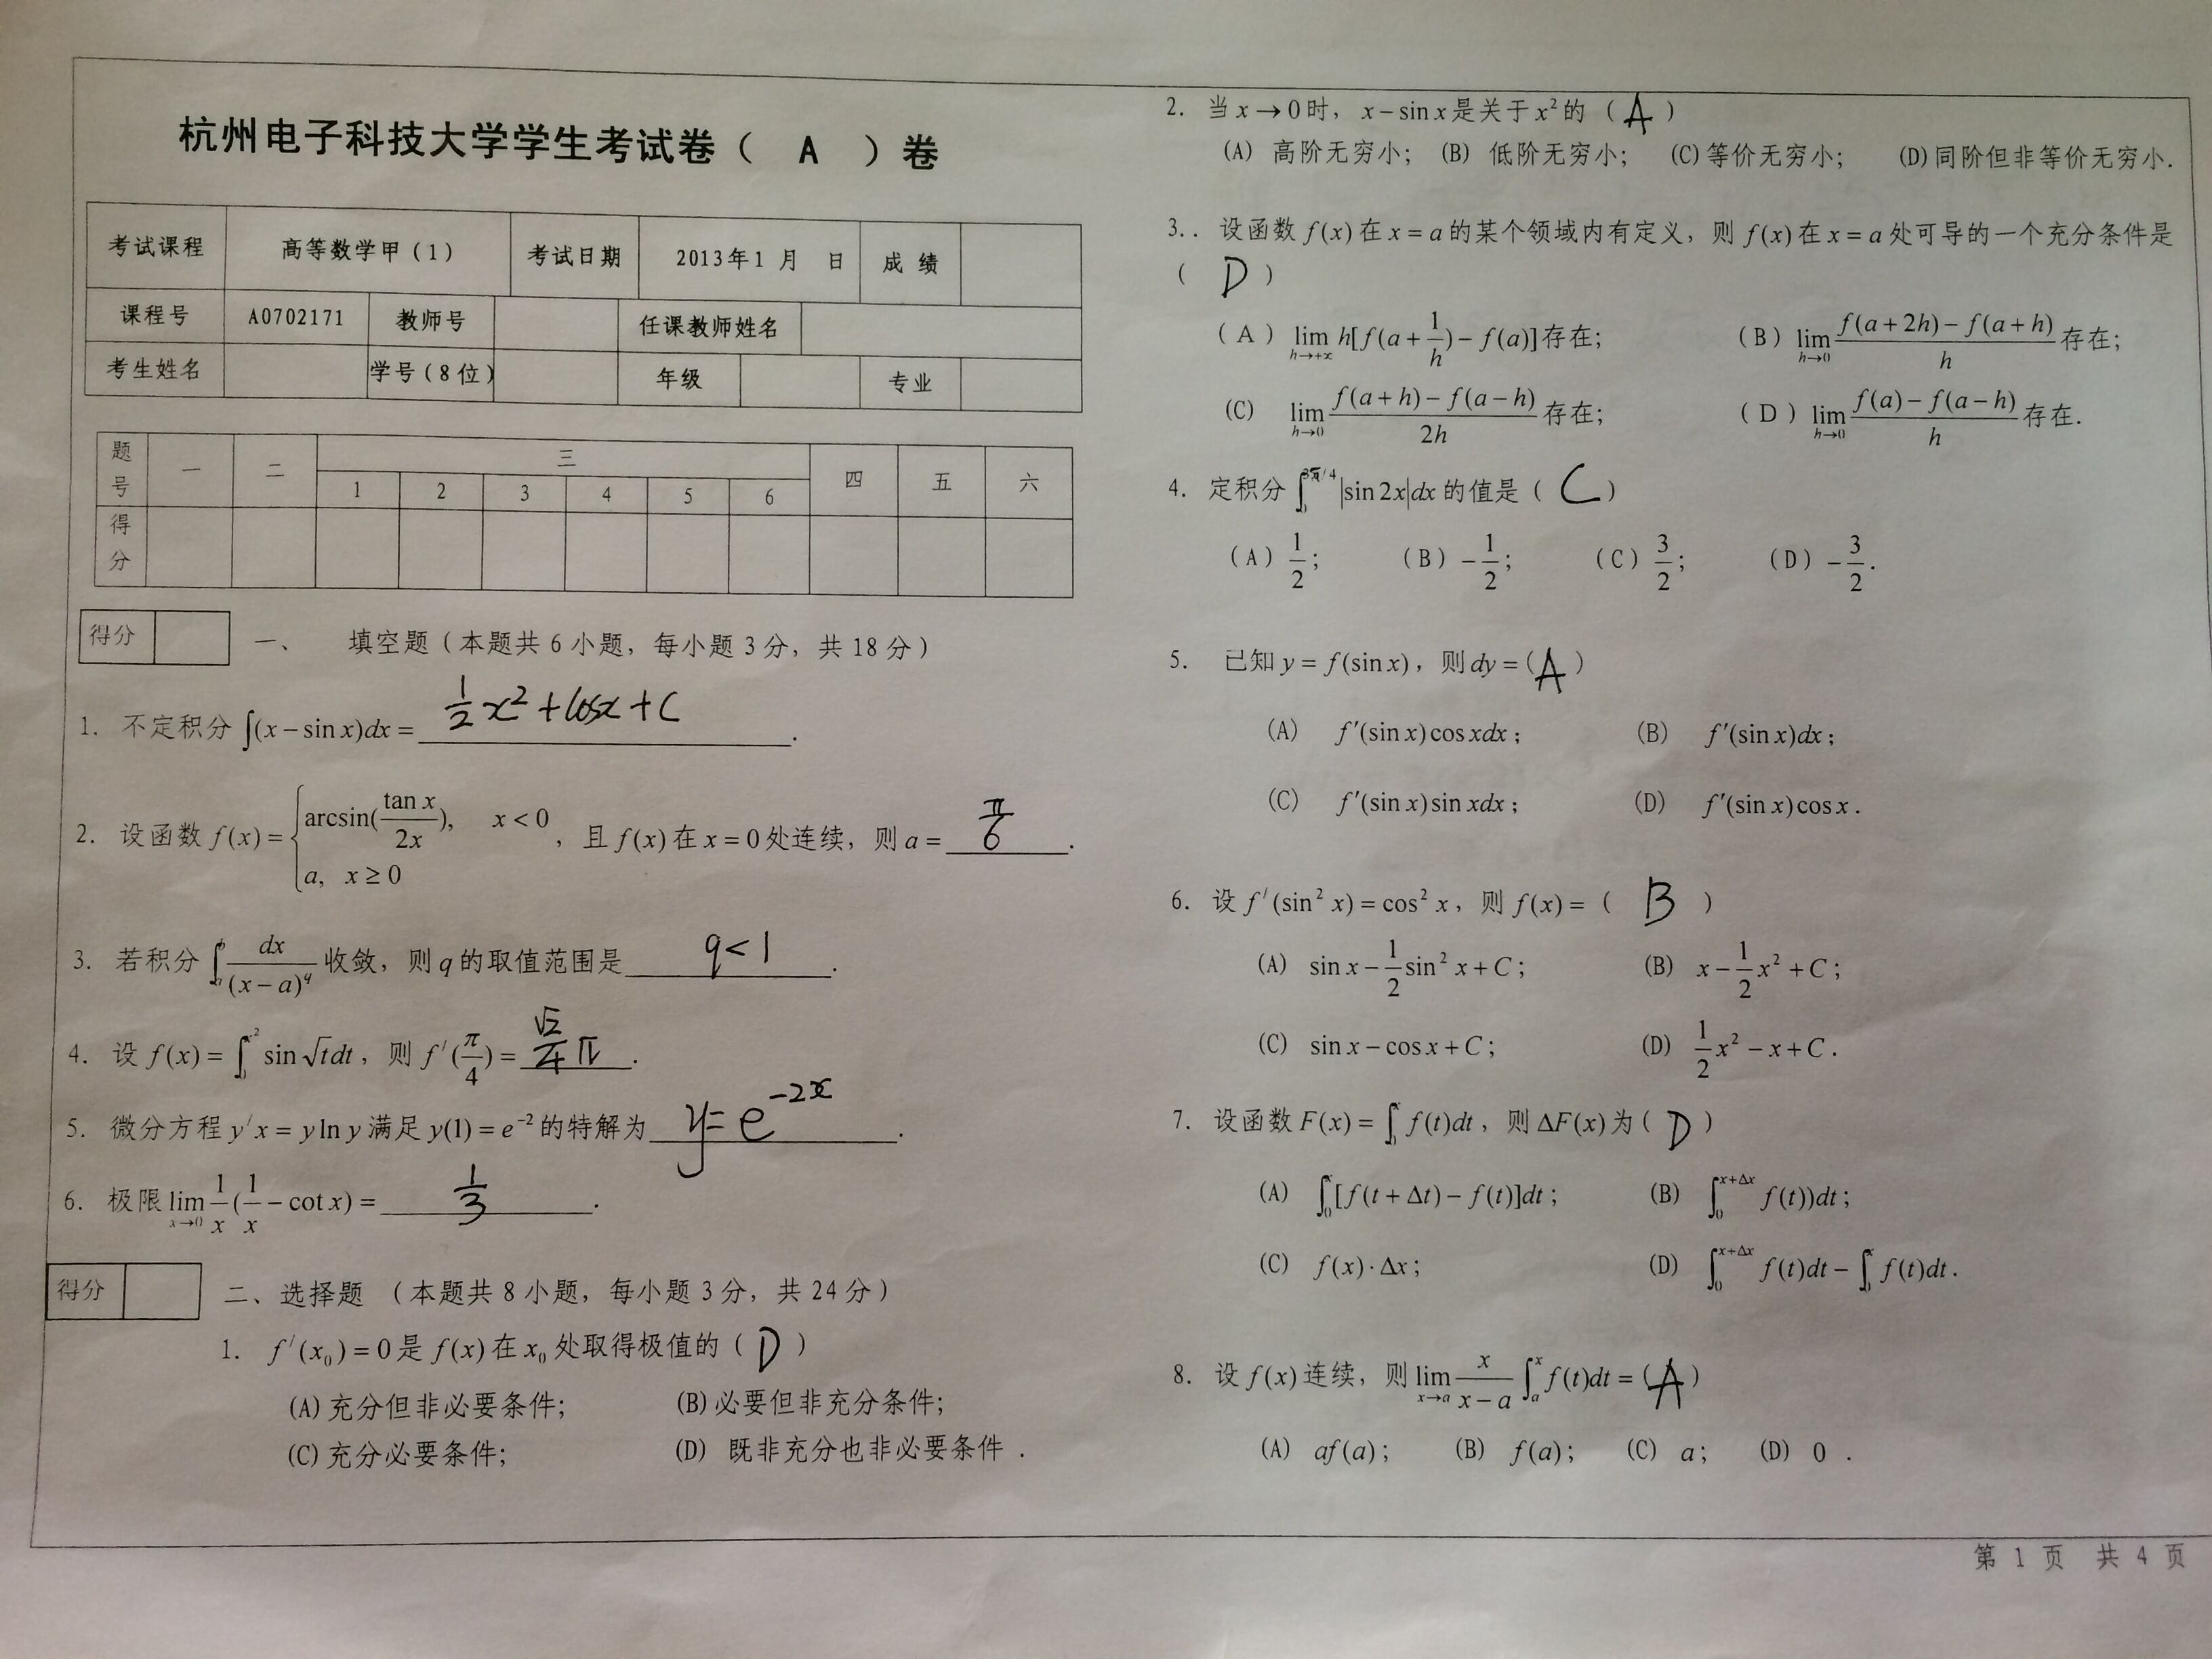 杭州电子科技大学学生考试卷（ A ）卷
考试课程 高等数学甲（1） 考试日期 2013年1 月 日 成 绩
课程号 A0702171 教师号 任课教师姓名
考生姓名 学号（8位） 年级 专业
题号 一 二 三 四 五 六
1 2 3 4 5 6
得分
得分 一、 填空题（本题共 6 小题，每小题 3 分，共 18 分）
1. 不定积分 ∫(x − sin x)dx = ½x² + cosx + C .
2. 设函数 f(x) = { arcsin(tan x / 2x), x < 0 ，且 f(x) 在 x = 0 处连续，则 a = π/6 .
a, x ≥ 0
3. 若积分 ∫ₐᵇ dx/(x − a)^q 收敛，则 q 的取值范围是 q < 1 .
4. 设 f(x) = ∫₀^{x²} sin √t dt，则 f′(π/4) = √2/4 π .
5. 微分方程 y′x = y ln y 满足 y(1) = e⁻² 的特解为 y = e^{-2x} .
6. 极限 lim_{x→0} 1/x (1/x − cot x) = 1/3 .
得分 二、选择题 （本题共 8 小题，每小题 3 分，共 24 分）
1. f′(x₀) = 0 是 f(x) 在 x₀ 处取得极值的（ D ）
(A) 充分但非必要条件； (B) 必要但非充分条件；
(C) 充分必要条件； (D) 既非充分也非必要条件 .
2. 当 x → 0 时， x − sin x 是关于 x² 的（ A ）
(A) 高阶无穷小； (B) 低阶无穷小； (C) 等价无穷小； (D) 同阶但非等价无穷小.
3. . 设函数 f(x) 在 x = a 的某个领域内有定义，则 f(x) 在 x = a 处可导的一个充分条件是
（ D ）
（A）lim_{h→+∞} h[f(a + 1/h) − f(a)] 存在； （B）lim_{h→0} (f(a + 2h) − f(a + h))/h 存在；
(C) lim_{h→0} (f(a + h) − f(a − h))/2h 存在； （D）lim_{h→0} (f(a) − f(a − h))/h 存在.
4. 定积分 ∫₀^{3π/4} |sin 2x|dx 的值是（ C ）
（A）1/2； （B）−1/2； （C）3/2； （D）−3/2.
5. 已知 y = f(sin x)，则 dy =（ A ）
(A) f′(sin x)cos xdx； (B) f′(sin x)dx；
(C) f′(sin x)sin xdx； (D) f′(sin x)cos x.
6. 设 f′(sin² x) = cos² x，则 f(x) =（ B ）
(A) sin x − ½ sin² x + C； (B) x − ½x² + C；
(C) sin x − cos x + C； (D) ½x² − x + C.
7. 设函数 F(x) = ∫₀^x f(t)dt，则 ΔF(x) 为（ D ）
(A) ∫₀^x [f(t + Δt) − f(t)]dt； (B) ∫₀^{x+Δx} f(t))dt；
(C) f(x)·Δx； (D) ∫₀^{x+Δx} f(t)dt − ∫₀^x f(t)dt.
8. 设 f(x) 连续，则 lim_{x→a} x/(x − a) ∫ₐ^x f(t)dt =（ A ）
(A) af(a)； (B) f(a)； (C) a； (D) 0 .
第 1 页 共 4 页